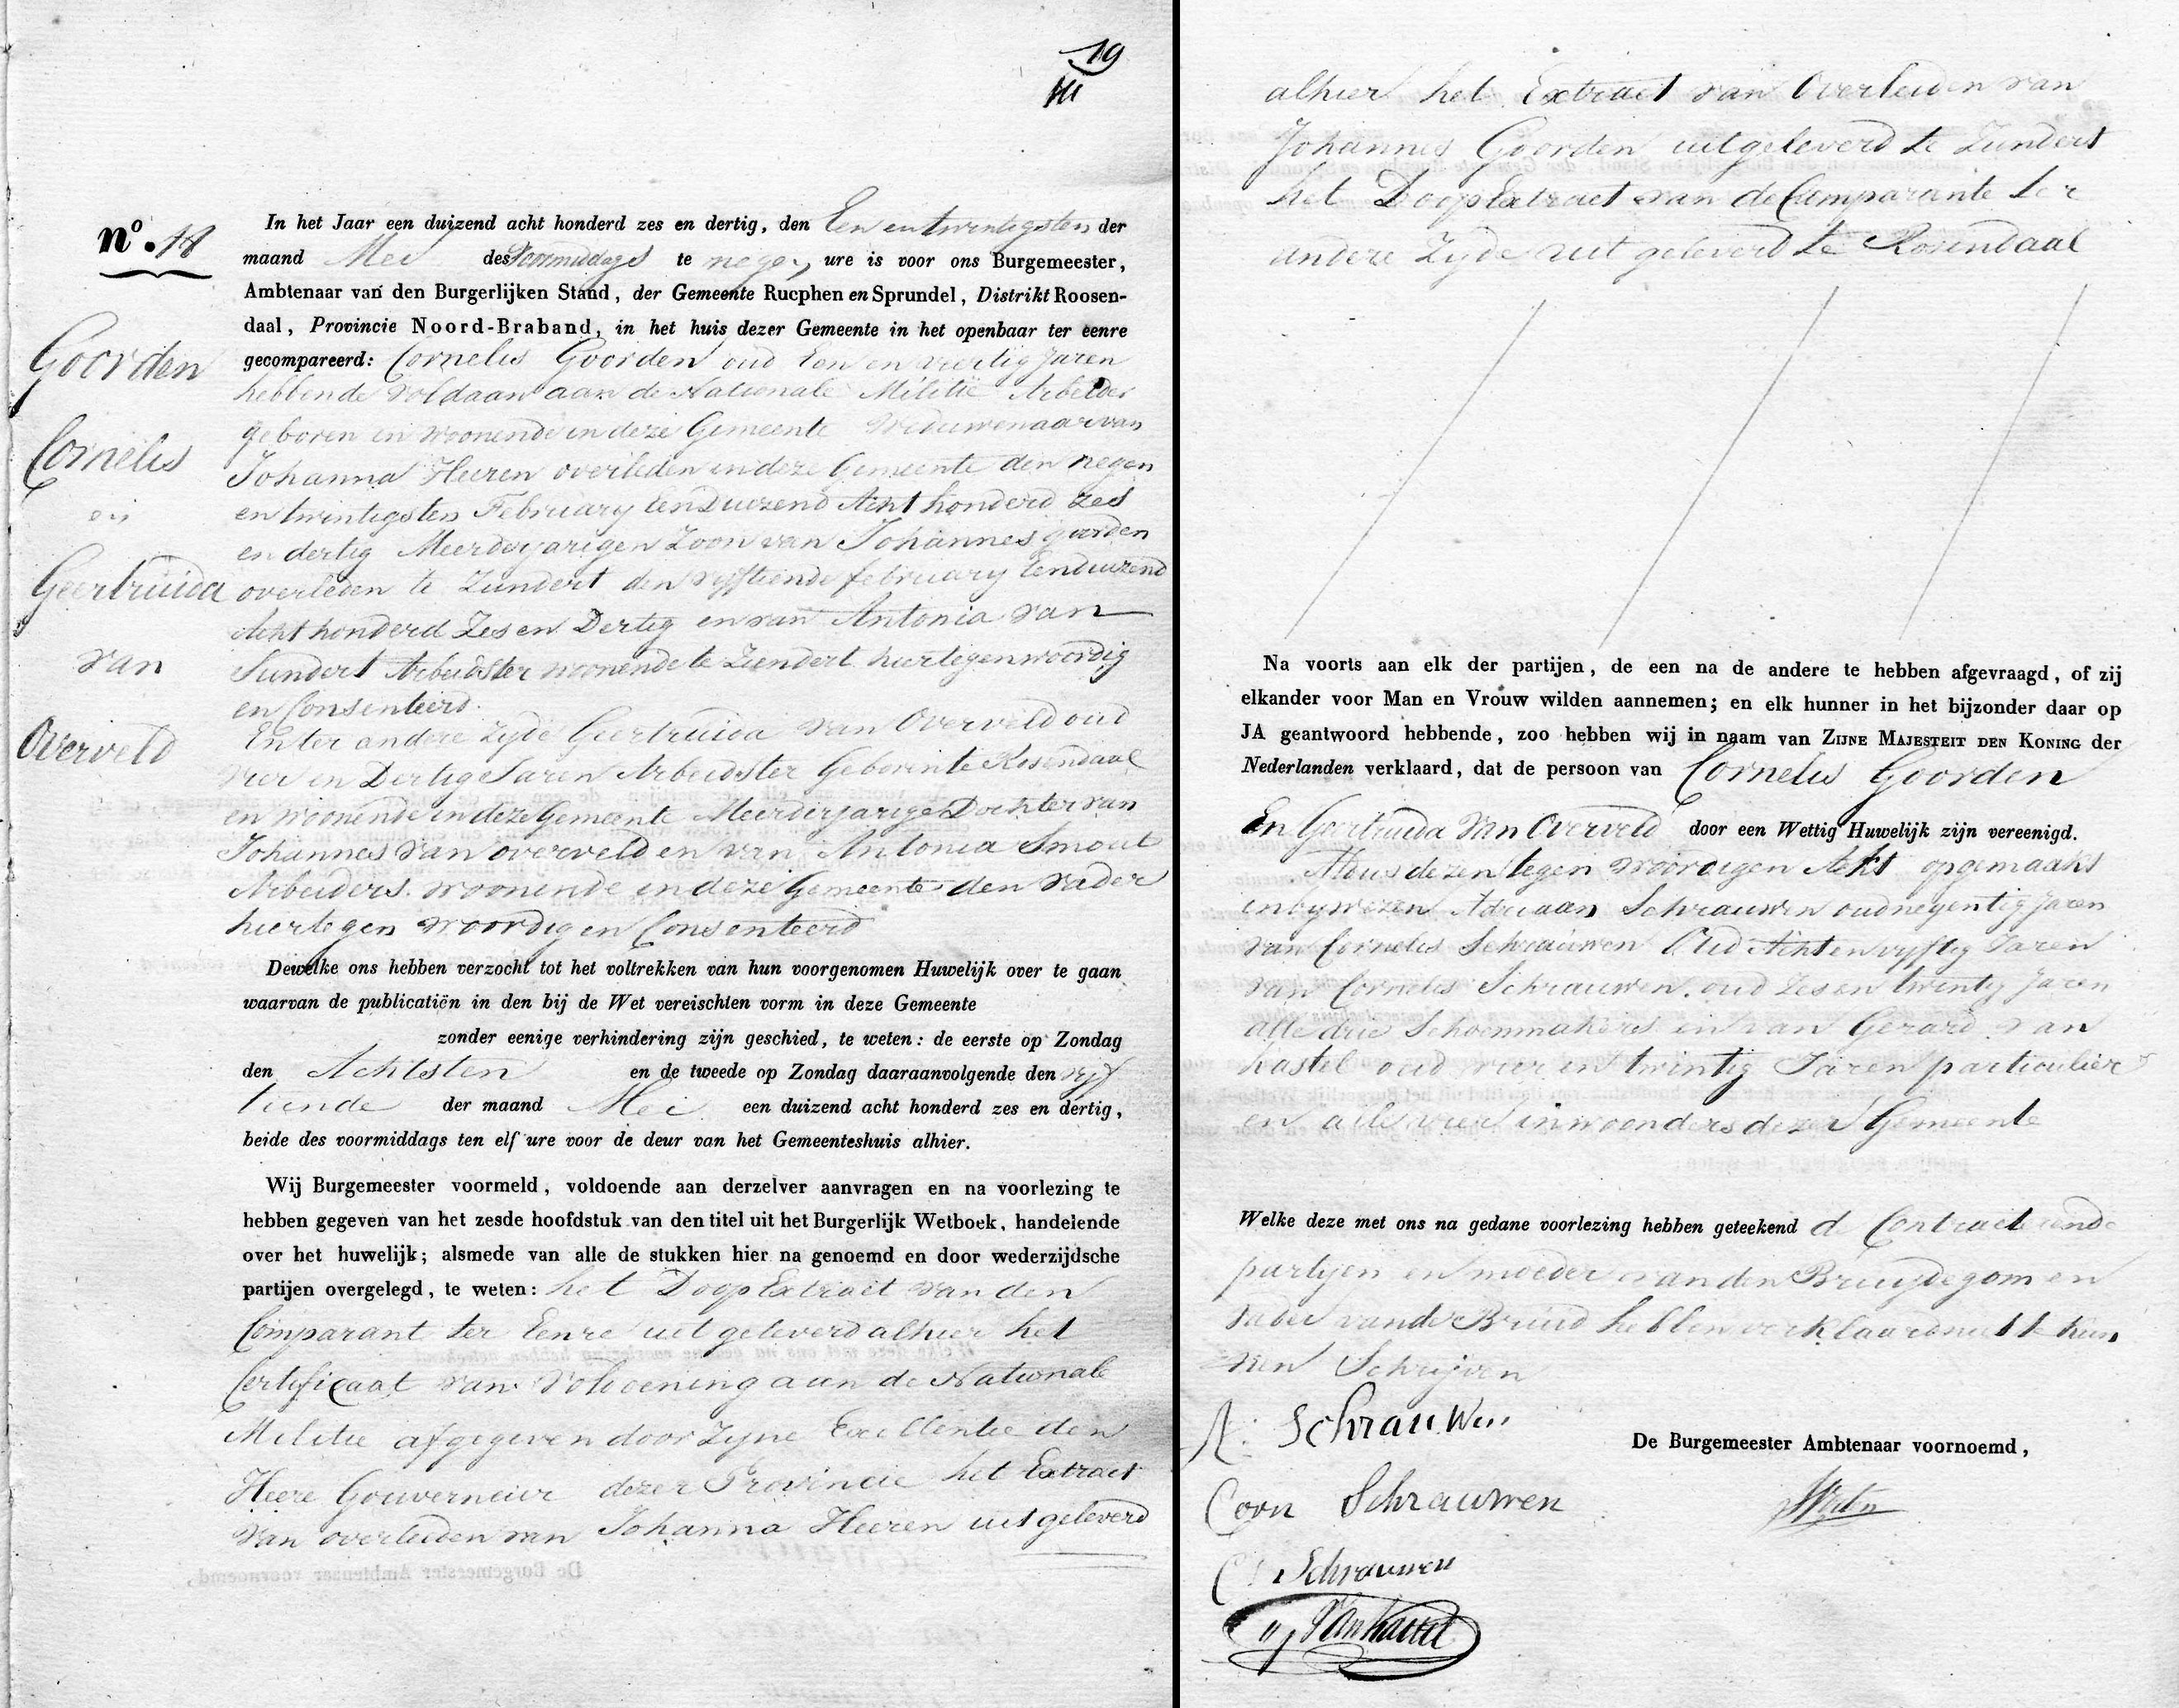 19
nº. 18
In het Jaar een duizend acht honderd zes en dertig, den Een en twintigsten der
maand Mei des Voormiddags te negen ure is voor ons Burgemeester,
Ambtenaar van den Burgerlijken Stand, der Gemeente Rucphen en Sprundel, Distrikt Roosen-
daal, Provincie Noord-Braband, in het huis dezer Gemeente in het openbaar ter eenre
gecompareerd: Cornelis Goorden oud Een en veertig Jaren
hebbende voldaan aan de Nationale Militie Arbeider
geboren en woonende in deze Gemeente Weduwenaar van
Johanna Heeren overleden in deze Gemeente den negen
en twintigsten February Eenduizend Acht honderd zes
en dertig Meerderjarigen Zoon van Johannes goorden
overleden te Zundert den vyftiende february Eenduizend
Acht honderd Zes en Dertig en van Antonia van
Sundert Arbeidster woonende te Zundert hiertegenwoordig
en Consenteerd.
En ter andere zyde Geertruida van Overveld oud
vier en Dertig Jaren Arbeidster Geboren te Rosendaal
en woonende in deze Gemeente Meerderjarige Dochter van
Johannes van overveld en van Antonia Smout
Arbeiders woonende in deze Gemeente den vader
hiertegenwoordig en Consenteerd
Goorden
Cornelis
en
Geertruida
van
Overveld
Dewelke ons hebben verzocht tot het voltrekken van hun voorgenomen Huwelijk over te gaan
waarvan de publicatiën in den bij de Wet vereischten vorm in deze Gemeente
zonder eenige verhindering zijn geschied, te weten: de eerste op Zondag
den Achtsten en de tweede op Zondag daaraanvolgende den vyf
tiende der maand Mei een duizend acht honderd zes en dertig,
beide des voormiddags ten elf ure voor de deur van het Gemeenteshuis alhier.
Wij Burgemeester voormeld, voldoende aan derzelver aanvragen en na voorlezing te
hebben gegeven van het zesde hoofdstuk van den titel uit het Burgerlijk Wetboek, handelende
over het huwelijk; alsmede van alle de stukken hier na genoemd en door wederzijdsche
partijen overgelegd, te weten: het Doop Extract van den
Comparant ter Eenre uitgeleverd alhier het
Certificaat van Voldoening aan de Nationale
Militie afgegeven door Zyne Excellentie den
Heere Gouverneur dezer Provincie het Extract
van overleiden van Johanna Heeren uitgeleverd
alhier het Extract van Overleiden van
Johannes Goorden uitgeleverd te Zundert
het Doop Extract van de Comparante ter
andere Zyde uitgeleverd te Rosendaal
Na voorts aan elk der partijen, de een na de andere te hebben afgevraagd, of zij
elkander voor Man en Vrouw wilden aannemen; en elk hunner in het bijzonder daar op
JA geantwoord hebbende, zoo hebben wij in naam van Zijne Majesteit den Koning der
Nederlanden verklaard, dat de persoon van Cornelis Goorden
En Geertruida Van Overveld door een Wettig Huwelijk zijn vereenigd.
Aldus dezen tegenwoordigen Akt opgemaakt
in bywezen Adriaan Schrauwen oud negentig Jaren
van Cornelis Schrauwen Oud Achtenvyftig Jaren
van Cornelis Schrauwen oud Zesen twintig Jaren
alle drie Schoenmakers en van Gerard van
hastel oud vier en twintig Jaren particulier
en alle vier inwoonders dezer Gemeente
Welke deze met ons na gedane voorlezing hebben geteekend d Contracteerende
partyen en moeder van den Bruydegom en
vader van de Bruid hebben verklaard niet te kun
nen Schryven
A: Schrauwen
Corn Schrauwen
C: Schrauwen
G V Van hastel
De Burgemeester Ambtenaar voornoemd,